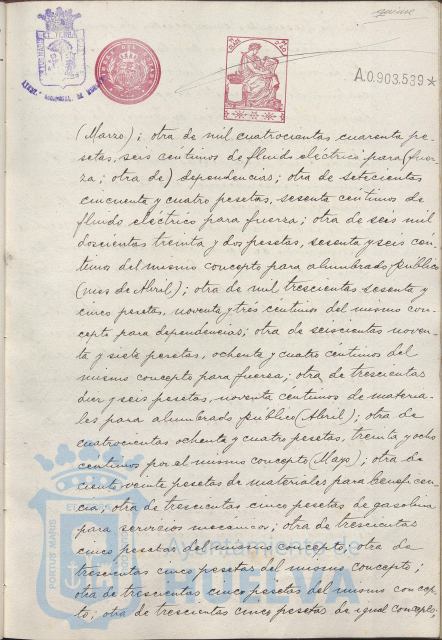 A.0.903.539*
(Marzo); otra de mil cuatrocientas cuarenta pe-
setas, seis céntimos de fluido eléctrico para (fuer-
za; otra de) dependencias; otra de setecientas
cincuenta y cuatro pesetas, sesenta céntimos de
fluido eléctrico para fuerza; otra de seis mil
doscientas treinta y dos pesetas, sesenta y seis cén-
timos del mismo concepto para alumbrado público
(mes de Abril); otra de mil trescientas sesenta y
cinco pesetas, noventa y trés céntimos del mismo con-
cepto para dependencias; otra de seiscientas noven-
ta y siete pesetas, ochenta y cuatro céntimos del
mismo concepto para fuerza; otra de trescientas
diez y seis pesetas, noventa céntimos de materia-
les para alumbrado público (Abril); otra de
cuatrocientas ochenta y cuatro pesetas, treinta y ocho
céntimos por el mismo concepto (Mayo); otra de
ciento veinte pesetas de materiales para benefi-cen-
cia; otra de trescientas cinco pesetas de gasolina
para servicios mecánicos; otra de trescientas
cinco pesetas del mismo concepto; otra de
trescientas cinco pesetas del mismo concepto;
otra de trescientas cinco pesetas del mismo concep-
to; otra de trescientas cinco pesetas de igual concepto,
PORTUS MARIS
Ayuntamiento de
HUELVA